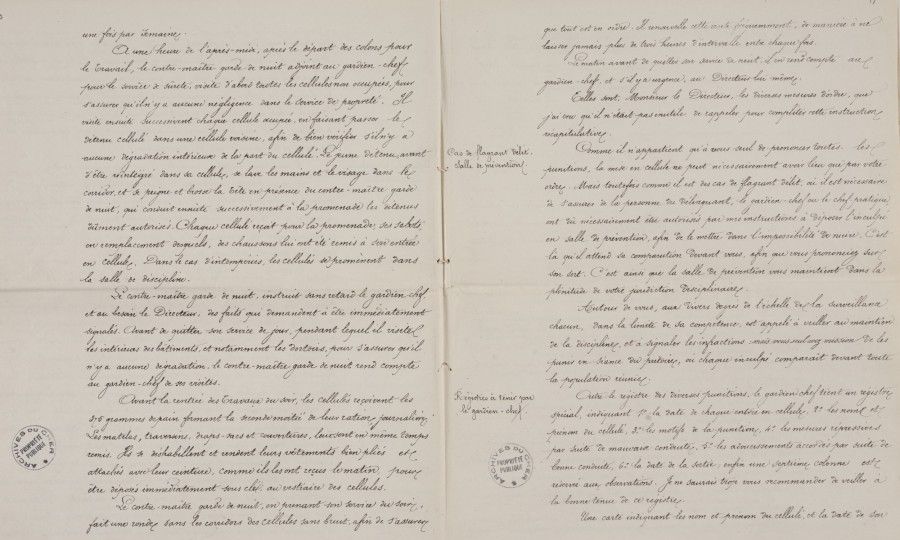 une fois par semaine.
A une heure de l'après-midi, après le départ des colons pour
le travail, le contre-maître garde de nuit adjoint au gardien-chef
pour le service de sureté, visite d'abord toutes les cellules non occupées, pour
s'assurer qu'il n'y a aucune négligence dans le service de propreté. Il
visite ensuite successivement chaque cellule occupée, en faisant passer le
détenu cellulé dans une cellule voisine, afin de bien vérifier s'il n'y a
aucune dégradation intérieure de la part du cellulé. Le jeune détenu, avant
d'être réintégré dans sa cellule, se lave les mains et le visage dans le
corridor, et se peigne et brosse la tête en présence du contre-maître garde
de nuit, qui conduit ensuite successivement à la promenade les détenus
dûment autorisés. Chaque cellulé reçoit pour la promenade, ses sabots,
en remplacement desquels, des chaussons lui ont été remis à son entrée
en cellule. Dans le cas d'intempéries, les cellulés se promènent dans
la salle de discipline.
Le contre-maître garde de nuit, instruit sans retard le gardien-chef
et au besoin le Directeur, des faits qui demandent à être immédiatement
signalés. Avant de quitter son service de jour, pendant lequel il visite
les intérieurs des bâtiments, et notamment les dortoirs, pour s'assurer qu'il
n'y a aucune dégradation, le contre-maître garde de nuit rend compte
au gardien-chef de ses visites.
Avant la rentrée des travaux du soir, les cellulés reçoivent les
375 grammes de pain formant la seconde moitié de leur ration journalière.
Les matelas, traversins, draps-sacs et couvertures, leur sont en même temps
remis. Ils se déshabillent et rendent leurs vêtements bien pliés et
attachés avec leur ceinture, comme ils les ont reçus le matin, pour
être déposés immédiatement sous clef, au vestiaire des cellules.
Le contre-maître garde de nuit, en prenant son service du soir,
fait une ronde dans les corridors des cellules sans bruit, afin de s'assurer
ARCHIVES DU CHER
PROPRIÉTÉ
PUBLIQUE
que tout est en ordre. Il renouvelle cette ronde fréquemment, de manière à ne
laisser jamais plus de trois heures d'intervalle entre chaque fois.
Le matin avant de quitter son service de nuit, il en rend compte au
gardien-chef, et s'il y a urgence, au Directeur lui même.
Telles sont, Monsieur le Directeur, les diverses mesures d'ordre, que
j'ai cru qu'il n'était pas inutile de rappeler pour compléter cette instruction
récapitulative.
Cas de flagrant délit.
Salle de prévention.
Comme il n'appartient qu'à vous seul de prononcer toutes les
punitions, la mise en cellule ne peut nécessairement avoir lieu que par votre
ordre. Mais toutefois comme il est des cas de flagrant délit, où il est nécessaire
de s'assurer de la personne du délinquant, le gardien-chef ou le chef pratique
ont dû nécessairement être autorisés par mes instructions à déposer l'inculpé
en salle de prévention, afin de le mettre dans l'impossibilité de nuire. C'est
là qu'il attend sa comparution devant vous, afin que vous prononciez sur
son sort. C'est ainsi que la salle de prévention vous maintient dans la
plénitude de votre juridiction disciplinaire.
Autour de vous, aux divers degrés de l'échelle de la surveillance
chacun, dans la limite de sa compétence est appelé à veiller au maintien
de la discipline, et à signaler les infractions; mais vous seul avez mission de les
punir en séance du prétoire, où chaque inculpé comparait devant toute
la population réunie.
Registres à tenir par
le gardien-chef.
Outre le registre des diverses punitions, le gardien-chef tient un registre
spécial, indiquant 1° la date de chaque entrée en cellule, 2° les nom et
prénom du cellulé, 3° les motifs de la punition, 4° les mesures répressives
par suite de mauvaise conduite, 5° les adoucissements accordés par suite de
bonne conduite, 6° la date de la sortie, enfin une septième colonne est
réservée aux observations. Je ne saurais trop vous recommander de veiller à
la bonne tenue de ce registre.
Une carte indiquant les nom et prénom du cellulé, et la date de son
ARCHIVES DU CHER
PROPRIÉTÉ
PUBLIQUE